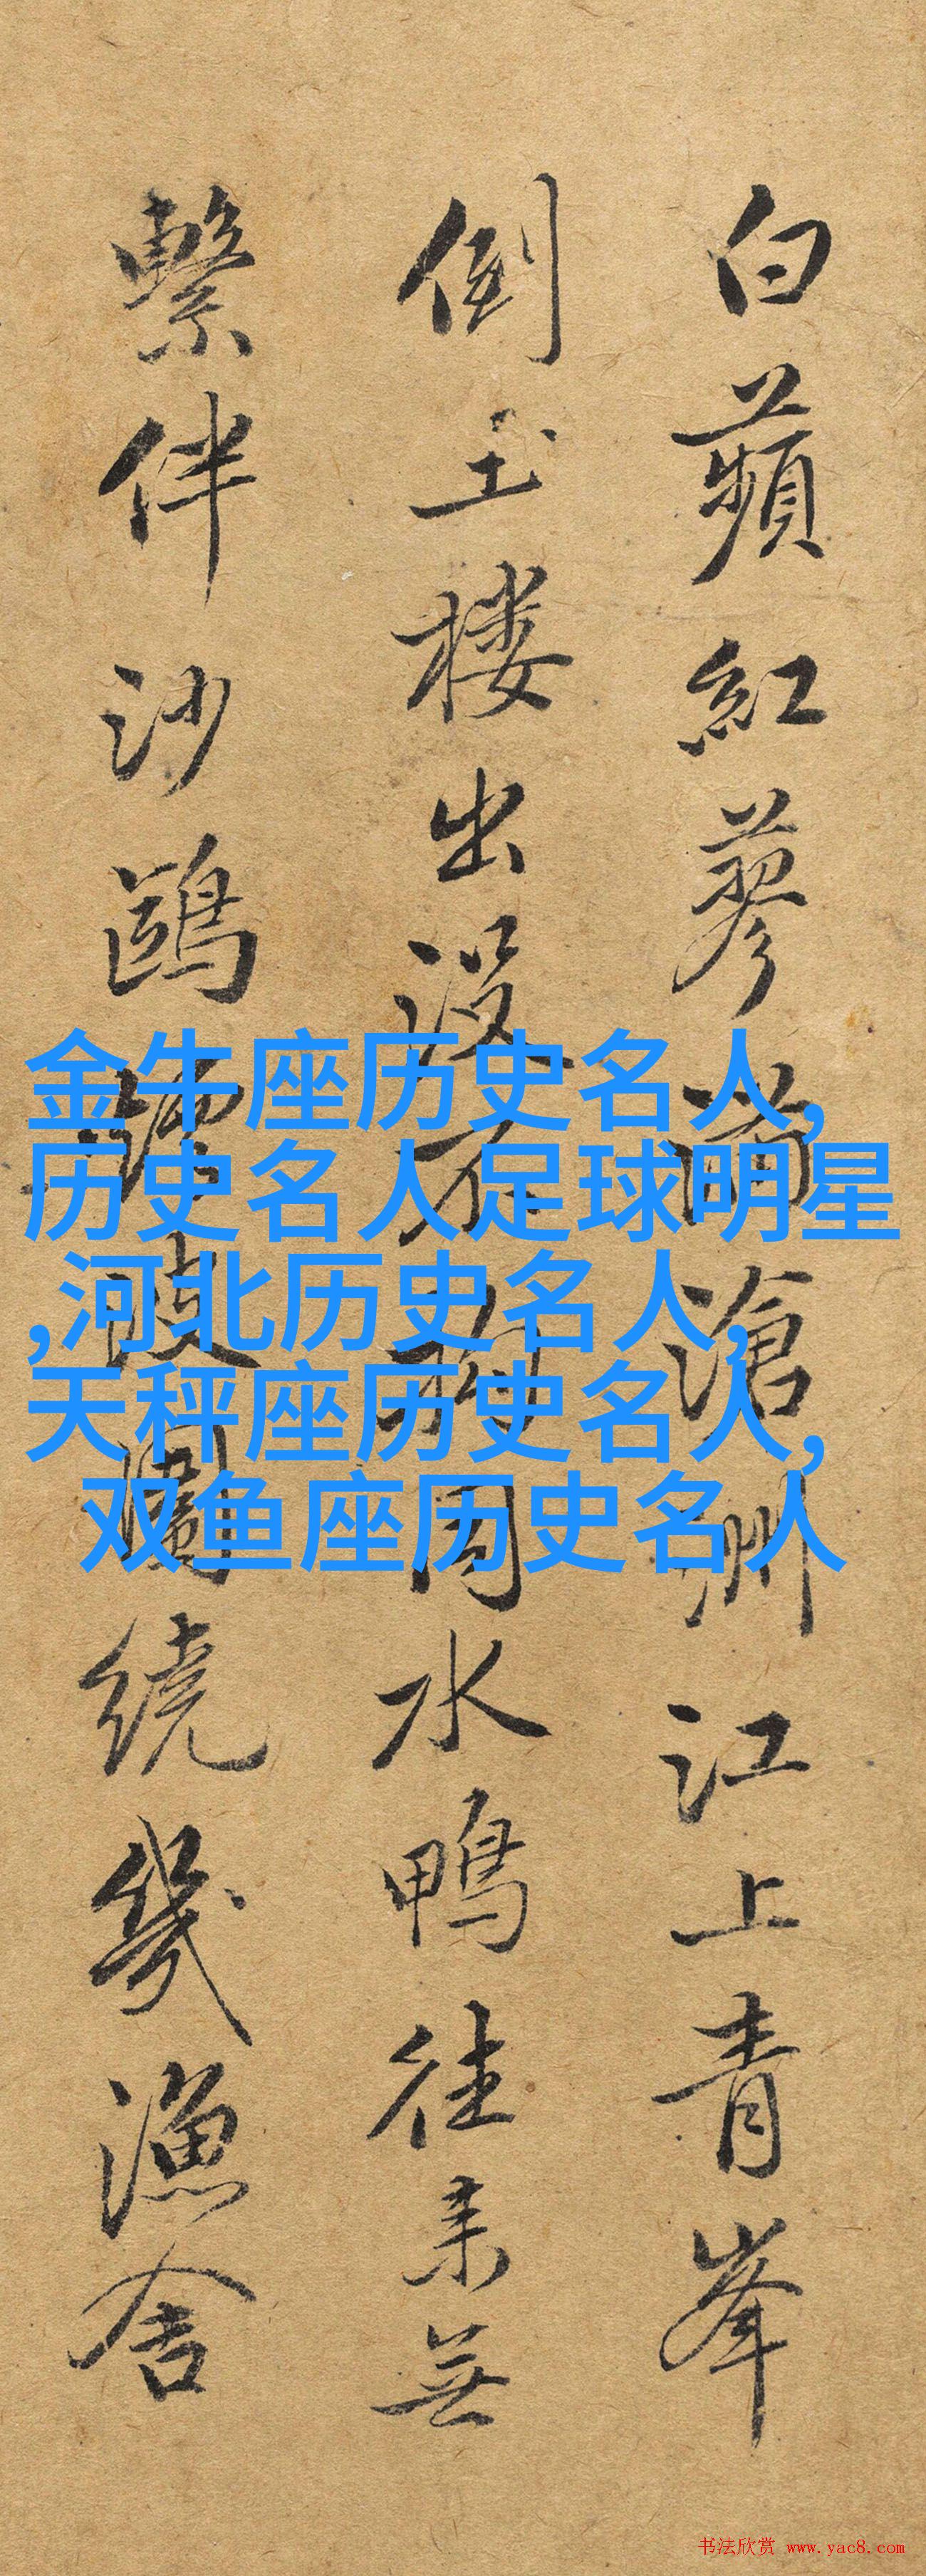 白蘋紅蓼滿滄洲江上青峯
倒玉楼出没不同水鴨往来無
繫伴沙鷗繞幾漁舍
金牛座历史名人,
历史名人足球明星
,河北历史名人,
天秤座历史名人,
双鱼座历史名人
书法欣赏 www.yac8.com